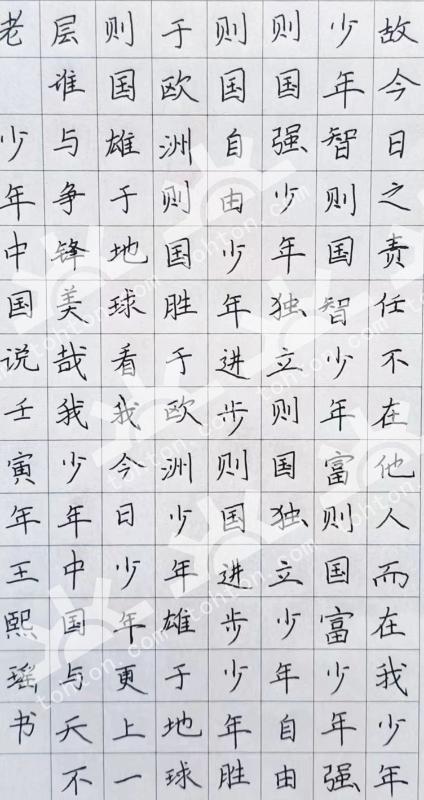 故今日之责任不在他人而在我少年
少年智则国智少年富则国富少年强
则国强少年独立则国独立少年自由
则国自由少年进步则国进步少年胜
于欧洲则国胜于欧洲少年雄于地球
则国雄于地球看我今日少年更上一
层谁与争锋美哉我少年中国与天不
老 少年中国说壬寅年王熙瑶书
tohton.com